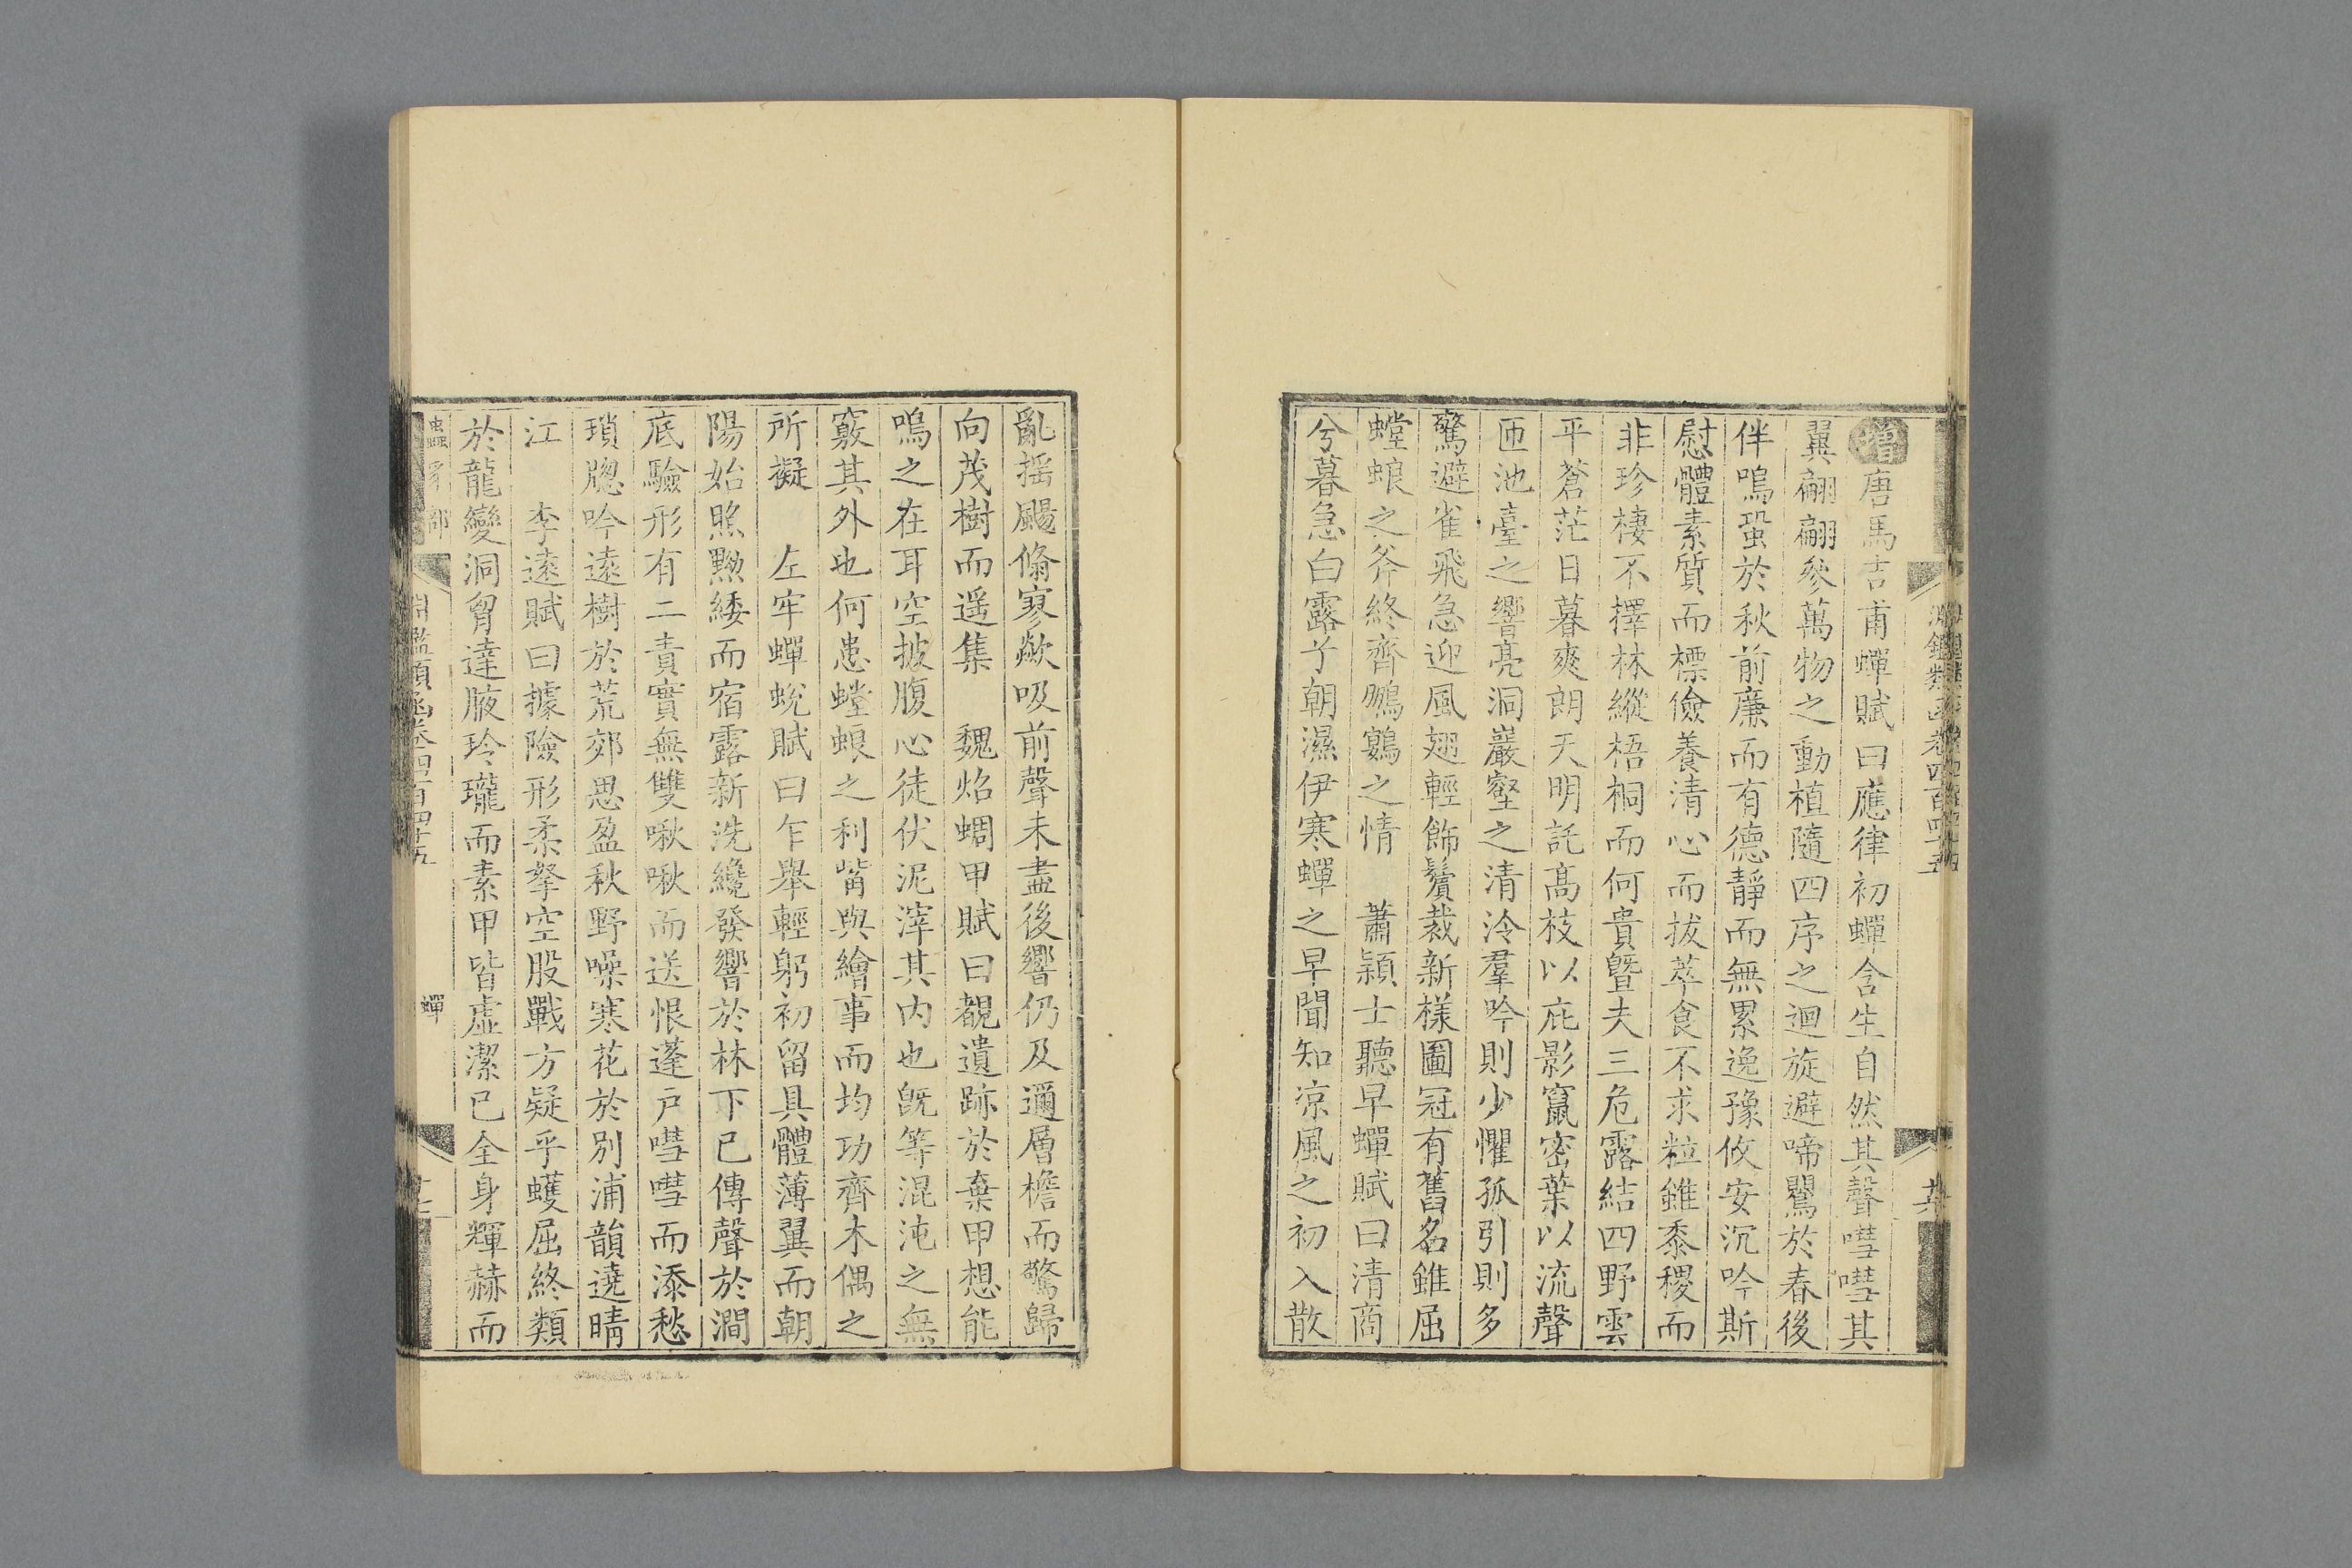 增唐馬吉甫蟬賦曰應律初蟬含生自然其聲嘒嘒其
翼翩翩參萬物之動植隨四序之迴旋避啼鸎於春後
伴鳴蛩於秋前廉而有德靜而無累逸豫攸安沉吟斯
慰體素質而標儉養清心而拔萃食不求粒雖黍稷而
非珍棲不擇林縱梧桐而何貴曁夫三危露結四野雲
平蒼茫日暮爽朗天明託高枝以庇影竄密葉以流聲
匝池臺之響亮洞巖壑之清泠羣吟則少懼孤引則多
驚避雀飛急迎風翅輕飾鬢裁新樣圖冠有舊名雖屈
螳蜋之斧終齊鵬鷃之情　蕭穎士聽早蟬賦曰清商
兮暮急白露兮朝濕伊寒蟬之早聞知凉風之初入散
淵鑑類函卷四百四十五
亂揺颺翛寥歘吸前聲未盡後響仍及邇層檐而驚歸
向茂樹而遥集　魏炤蜩甲賦曰覩遺跡於棄甲想能
鳴之在耳空披腹心徒伏泥滓其内也旣等混沌之無
竅其外也何患螳蜋之利觜與繪事而均功齊木偶之
所擬　左牢蟬蛻賦曰乍舉輕躬初留具體薄翼而朝
陽始照黝緌而宿露新洗纔發響於林下已傳聲於澗
底驗形有二責實無雙啾啾而送恨蓬戸嘒嘒而添愁
瑣牕吟遠樹於荒郊思盈秋野噪寒花於別浦韻遶晴
江　李遠賦曰據險形柔拏空股戰方疑乎蠖屈終類
於龍變洞胷達腋玲瓏而素甲皆虛潔已全身輝赫而
蟲豸部
淵鑑類函卷四百四十五
蟬